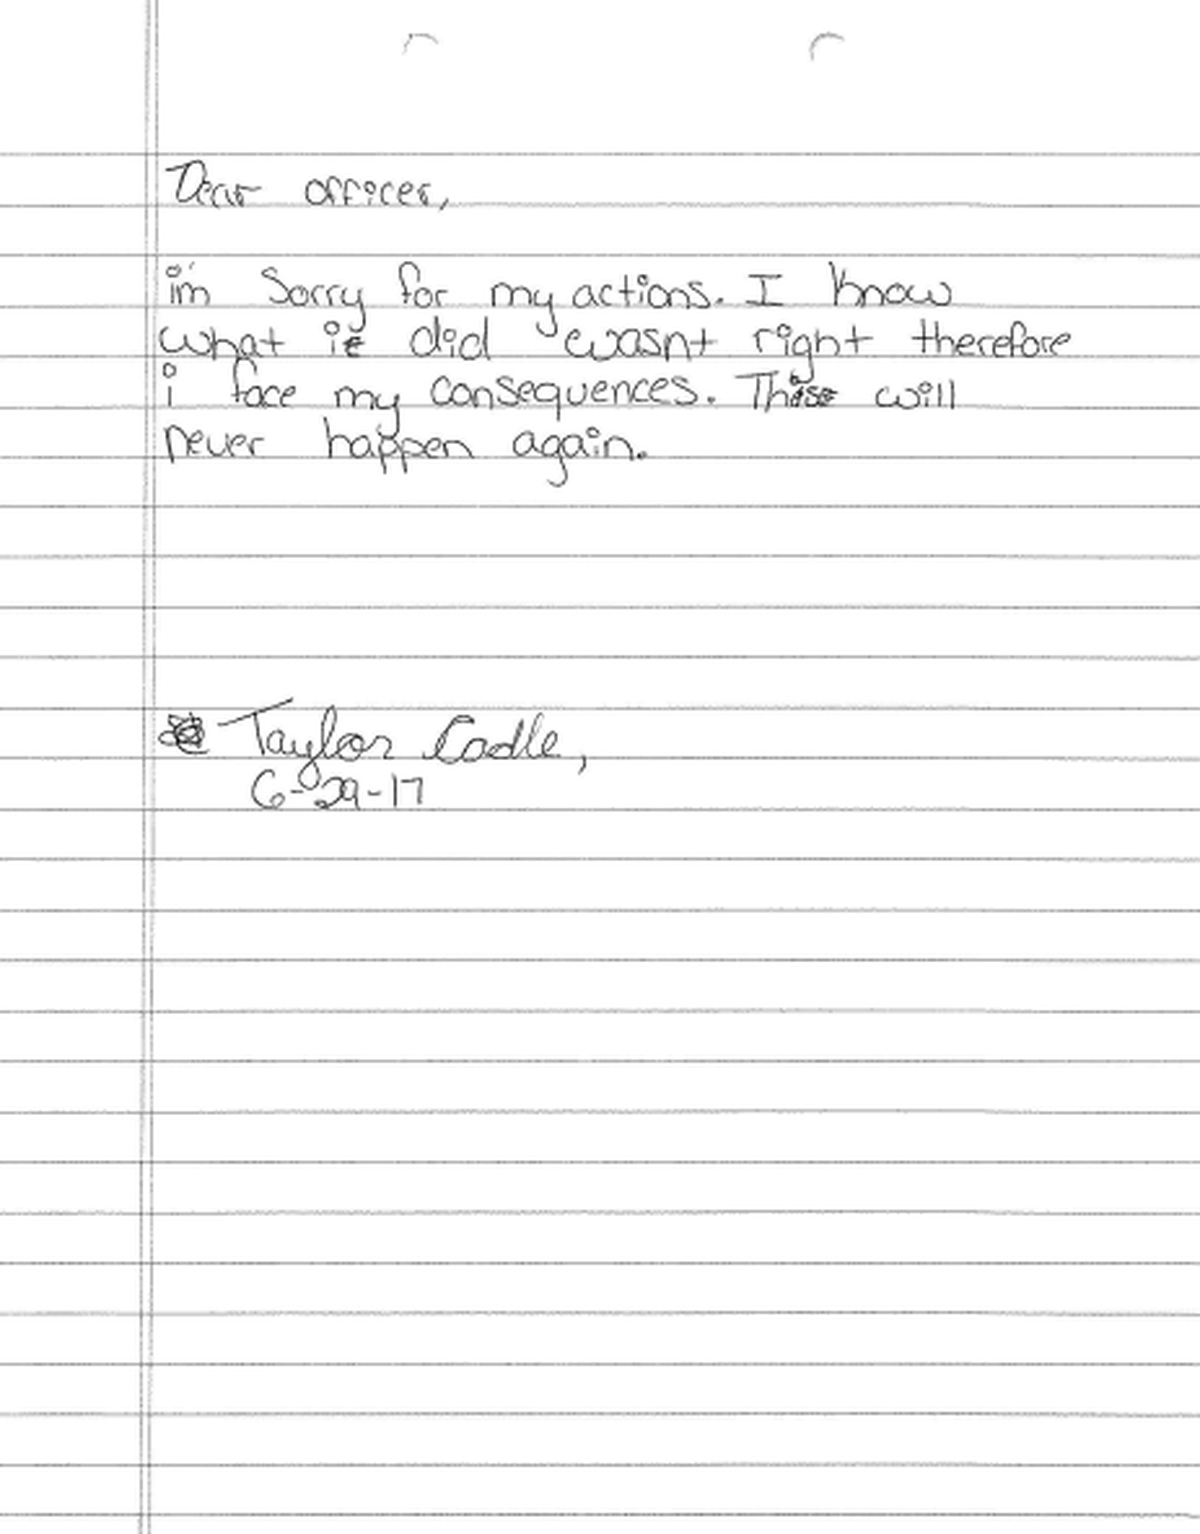 Dear officer,
i'm Sorry for my actions. I know
what i did wasnt right therefore
i face my consequences. This will
never happen again.
Taylor Cadle,
6-29-17